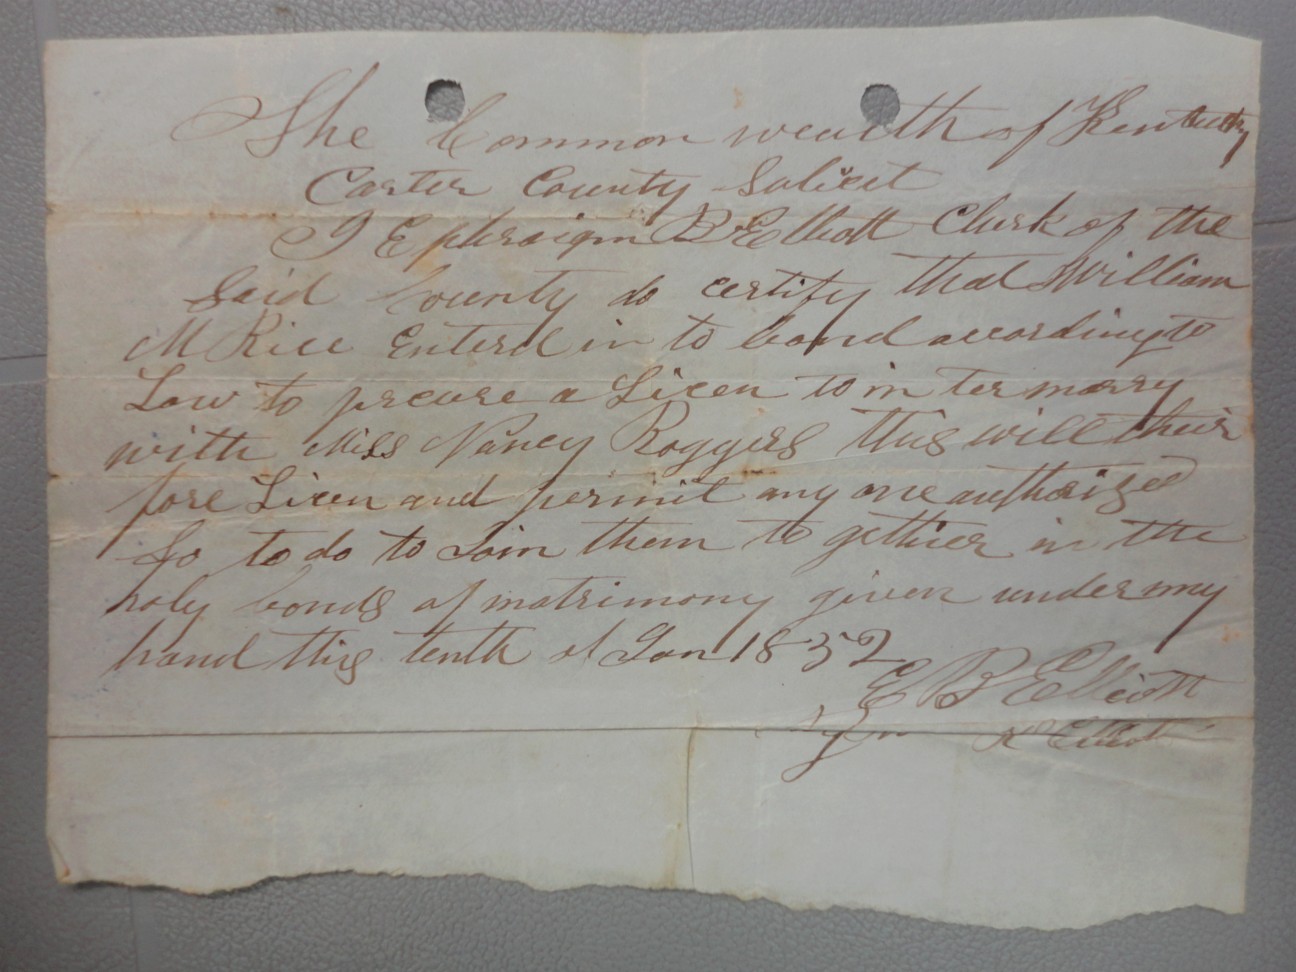 The Common wealth of Kentucky
Carter County Solicet
I Ephraigm B Elliott Clurk of the
Said County do certify that William
M Rice Enterd in to bond according to
Law to precure a Licen to in ter marry
with Miss Nancy Roggers this will their
fore Licen and permit any one authorized
So to do to Join them to gether in the
holy bonds of matrimony given under my
hand this tenth of Jan 1852
E B Elliott
K Elliott